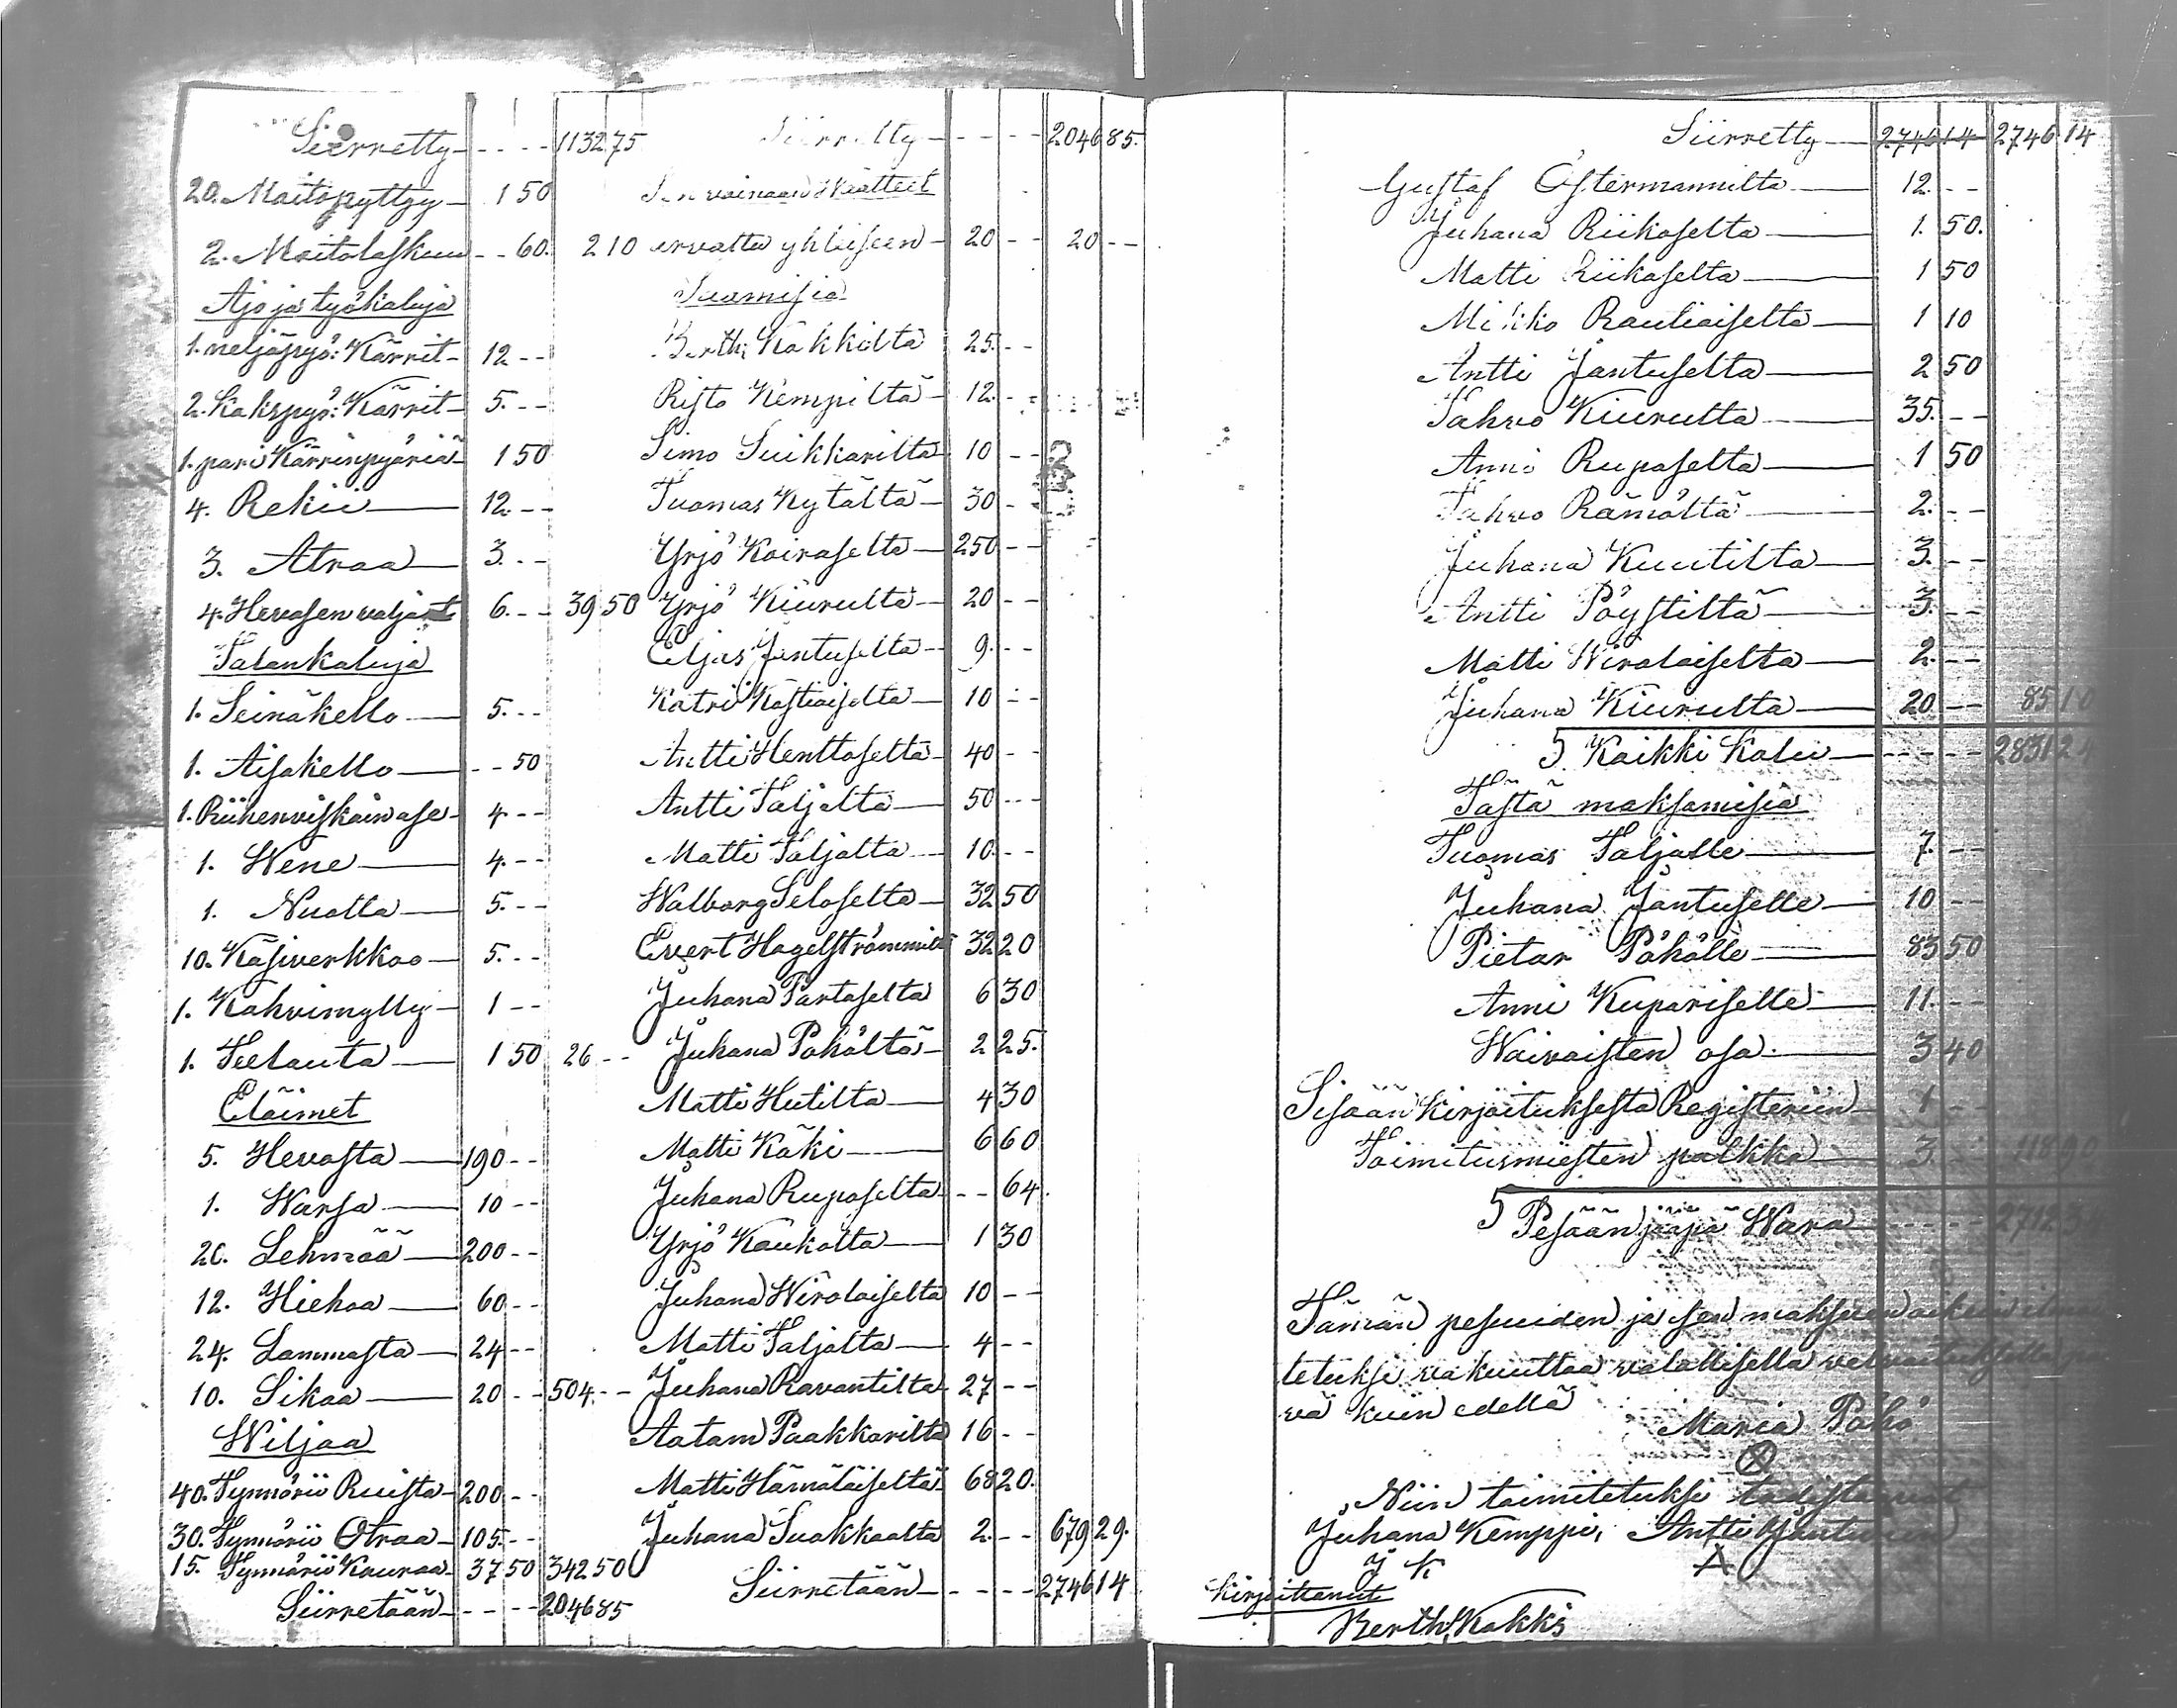 Siirretty - - - - 1132 75
20. Maitopyttyy 1 50
2. Maitolaskuu - - 60. 2 10
Ajo ja työkaluja
1. neljäpyö: Kärrit 12 - -
2. Kakspyö: Kärrit 5. - -
1. pari Kärrinpyöriä 1 50
4. Rekii 12. - -
3. Atraa 3. - -
4. Hevosen valjast 6. - - 39 50
Talonkaluja
1. Seinäkello 5. - -
1. Aisakello - - 50
1. Riihenviskain ase 4 - -
1. Wene 4. - -
1. Nuotta 5. - -
10. Käsiverkkoo 5. - -
1. Kahvimylly 1 - -
1. Teelauta 1 50 26 - -
Eläimet
5. Hevosta 190 - -
1. Warsa 10 - -
20. Lehmää 200 - -
12. Hiehoa 60 - -
24. Lammasta 24 - -
10. Sikaa 20 - - 504. - -
Wiljaa
40. Tynnörii Ruista 200 - -
30. Tynnörii Otraa 105. - -
15. Tynnörii Kauraa 37 50 342 50
Siirretään - - - - 2046 85
Siirretty - - - - 2046 85.
Sen vainaan Wäätteet
arvattu yhteiseen 20 - - 20 - -
Saamisia
Berth: Kakkilta 25. - -
Risto Kempiltä 12. - -
Simo Suikkarilta 10 - -
Tuomas Kytältä 30 - -
Yrjö Koiraselta 250 - -
Yrjö Kiurulta 20 - -
Eljas Jantuselta 9. - -
Katri Kostiaiselta 10 - -
Antti Henttoselta 40 - -
Antti Taljalta 50 - -
Matti Taljalta 10 - -
Walborg Seloselta 32 50
Evert Hagelströmmilt 32 20
Juhana Partaselta 6 30
Juhana Pöhöltä 2 25.
Matti Hutilta 4 30
Matti Käki 6 60
Juhana Rupaselta - - 64.
Yrjö Kaukolta 1 30
Juhana Wirolaiselta 10 - -
Matti Taljalta 4 - -
Juhana Ravantilta 27 - -
Aatam Paakkarilta 16 - -
Matti Hämäläiseltä 68 20.
Juhana Suokkaalta 2. - - 679 29.
Siirretään - - - - 2746 14
Siirretty 2746 14 2746 14
Gustaf Östermannilta 12. - -
Juhana Riikoselta 1. 50.
Matti Riikoselta 1 50
Mikko Rauliaiselta 1 10
Antti Jantuselta 2 50
Tahvo Kiurulta 35. - -
Anni Rupaselta 1 50
Tahvo Rämöltä 2. - -
Juhana Kuutilta 3. - -
Antti Pöystiltä 3. - -
Matti Wirolaiselta 2. - -
Juhana Kiurulta 20 - - 85 10
Kaikki Kalu - - - - 2831 24
Tästä maksamisia
Tuomas Taljalle 7. - -
Juhana Jantuselle 10 - -
Pietar Pöhölle 83 50
Anni Kupariselle 11. - -
Waivaisten osa 3 40
Sisään kirjoituksesta Registeriin 1 - -
Toimitusmiesten palkka 3. - - 118 90
Pesään jääpä Wara - - - - 2712 3
Tämän pesuuden ja sen maksuun
tetuksi vakuuttaa valallisella
vä kuin edellä
Maria Pöhö
Niin toimitetuksi todistavat
Juhana Kemppi, Antti Jantunen
J K
Kirjoittanut
Berth. Kakki